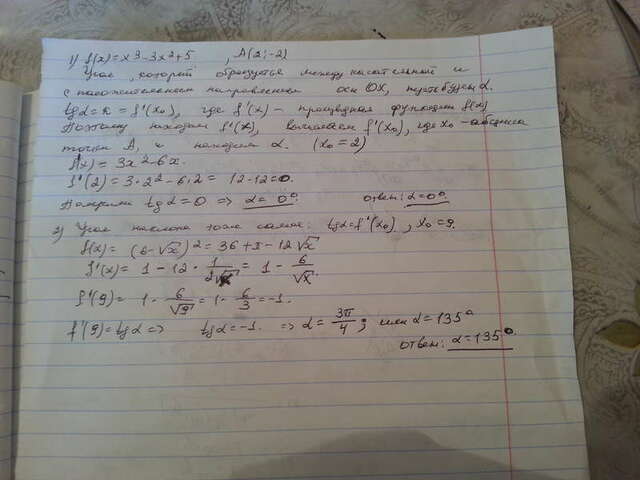 1) f(x)=x³-3x²+5 , A(2;-2)
Угол, который образуется между касательной и
с положительным направлением оси OX, пусть будет α.
tgα = k = f'(x₀), где f'(x) - производная функции f(x)
Поэтому находим f'(x), вычисляем f'(x₀), где x₀ - абсцисса
точки A, и находим α. (x₀=2)
f'(x) = 3x²-6x.
f'(2) = 3·2²-6·2 = 12-12=0.
Получили tgα=0 => α=0°. ответ: α=0°.
2) Угол наклона тоже самое: tgα=f'(x₀), x₀=9.
f(x) = (6-√x)² = 36+x-12√x
f'(x) = 1-12·1/2√x = 1-6/√x.
f'(9) = 1-6/√9 = 1-6/3=-1.
f'(9)=tgα => tgα=-1. => α=3π/4; или α=135°
ответ: α=135°.